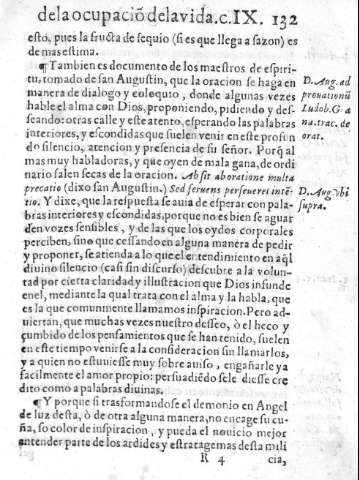 de la ocupació de la vida. c. IX. 132
esto, pues la fructa de sequio (si es que llega a sazon) es
de mas estima.
¶ Tambien es documento de los maestros de espiri-
tu, tomado de san Augustin, que la oracion se haga en
manera de dialogo y coloquio, donde algunas vezes
hable el alma con Dios, proponiendo, pidiendo y des-
seando: otras calle y este atento, esperando las palabras
interiores, y escondidas que suelen venir en este profun
do silencio, atencion y presencia de su señor. Porq̃ al
mas muy habladoras, y que oyen de mala gana, de ordi
nario salen secas de la oracion. Absit ab oratione multa
precatio (dixo san Augustin.) Sed feruens perseueret intẽ-
tio. Y dixe, que la respuesta se auia de esperar con pala-
bras interiores y escondidas, porque no es bien se aguar
den vozes sensibles, y de las que los oydos corporales
perciben, sino que cessando en alguna manera de pedir
y proponer, se atienda a lo que el entendimiento en aq̃l
diuino silencio (casi sin discurso) descubre a la volun-
tad por cierta claridad y illustracion que Dios infunde
en el, mediante la qual trata con el alma y la habla, que
es la que comunmente llamamos inspiracion. Pero ad-
uiertan, que muchas vezes nuestro desseo, ò el heco y
zumbido de los pensamientos que se han tenido, suelen
en este tiempo venirse a la consideracion sin llamarlos,
y a quien no estuuiesse muy sobre auiso, engañarle ya
facilmente el amor propio: persuadiẽdo se le diesse cre
dito como a palabras diuinas.
¶ Y porque si trasformandose el demonio en Angel
de luz desta, ò de otra alguna manera, no encage su cu-
ña, so color de inspiracion, y pueda el nouicio mejor
entender parte de los ardides y estratagemas desta mili
R 4 cia,
D. Aug. ad
prouationũ
Ludob. G a-
na. trac. de
orat.
D. Aug. vbi
supra.